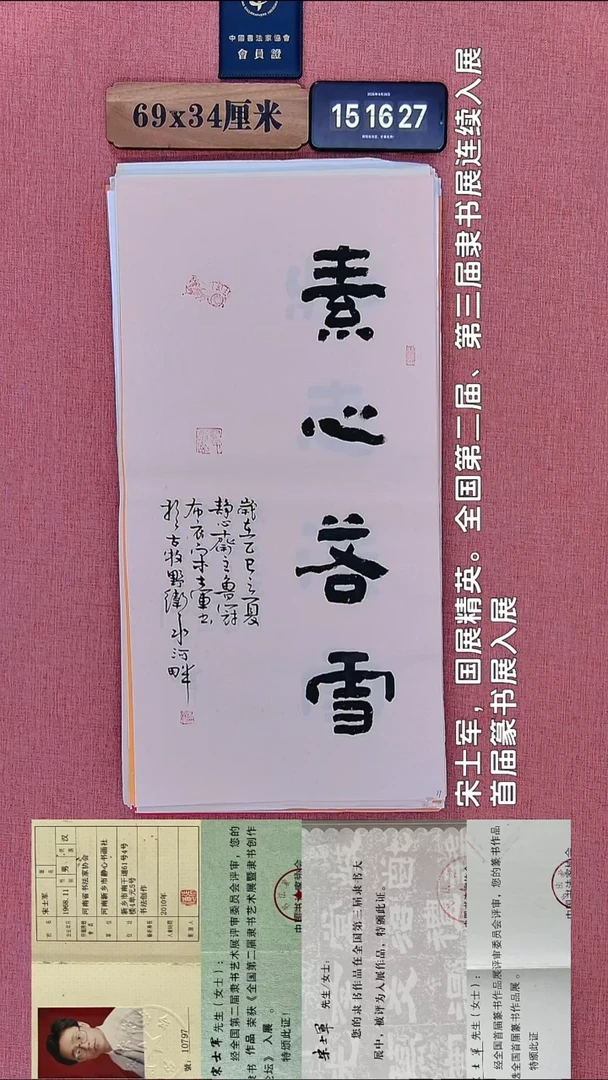 中國書法家協會
會員證
69x34厘米
15 16 27
素心若雪
歲在乙巳之夏
静心齋主魯冠
布衣宋士軍书
於古牧野衛水河畔
宋士军，国展精英。全国第二届、第三届隶书展连续入展
首届篆书展入展
宋士军
1968.11
男
汉
河南省书法家协会
河南新乡市静心书画社
新乡市南干道61号4号
楼4单元5号
书法创作
2010年
號: 10797
宋士军 先生（女士）:
经全国第二届隶书艺术展评审委员会评审，您的
隶书 作品 荣获《全国第二届隶书艺术展暨隶书创作
论坛》 入展 。
特颁此证！
宋士军 先生/女士:
您的隶书作品在全国第三届隶书大
展中，被评为入展作品，特颁此证。
士军 先生（女士）:
经全国首届篆书作品展评审委员会评审，您的篆书作品
入全国首届篆书作品展 。
特颁此证